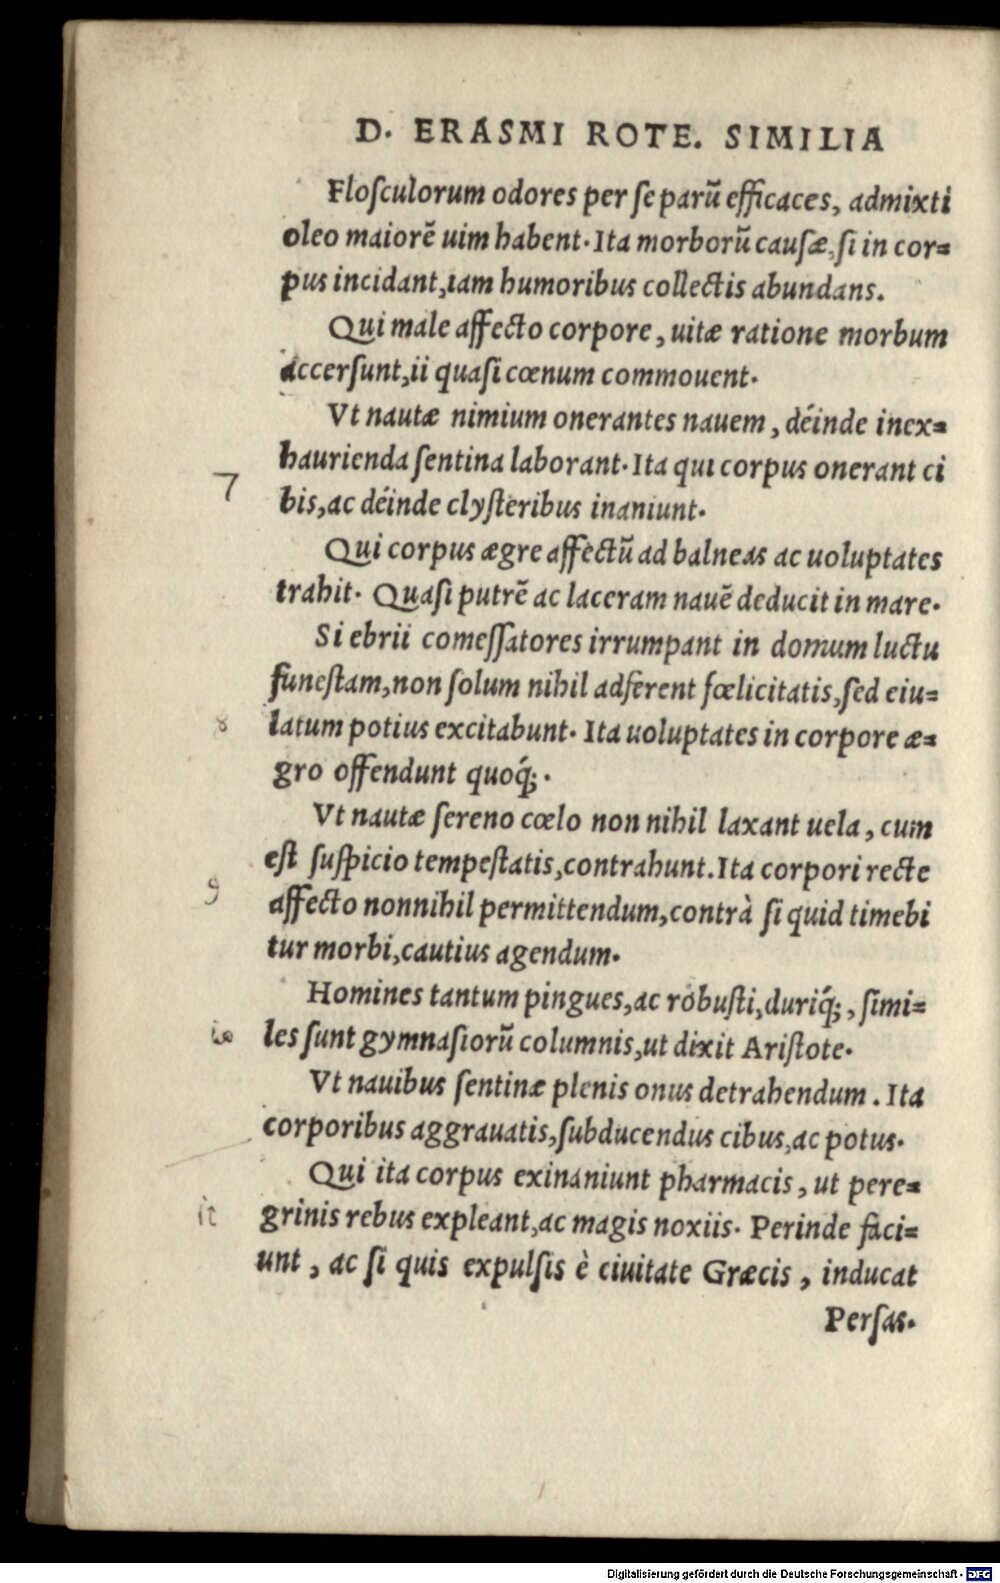 D. ERASMI ROTE. SIMILIA
Floſculorum odores per ſe parũ efficaces, admixti
oleo maiorẽ uim habent. Ita morborũ cauſæ, ſi in cor=
pus incidant, iam humoribus collectis abundans.
Qui male affecto corpore, uitæ ratione morbum
accerſunt, ii quaſi cœnum commouent.
Vt nautæ nimium onerantes nauem, déinde inex=
haurienda ſentina laborant. Ita qui corpus onerant ci
7
bis, ac déinde clyſteribus inaniunt.
Qui corpus ægre affectũ ad balneas ac uoluptates
trahit. Quaſi putrẽ ac laceram nauẽ deducit in mare.
Si ebrii comeſſatores irrumpant in domum luctu
funeſtam, non ſolum nihil adferent fœlicitatis, ſed eiu=
8
latum potius excitabunt. Ita uoluptates in corpore æ=
gro offendunt quoq́;.
Vt nautæ ſereno cœlo non nihil laxant uela, cum
eſt ſuſpicio tempeſtatis, contrahunt. Ita corpori recte
9
affecto nonnihil permittendum, contrà ſi quid timebi
tur morbi, cautius agendum.
Homines tantum pingues, ac robuſti, duriq́;, ſimi=
10
les ſunt gymnaſiorũ columnis, ut dixit Ariſtote.
Vt nauibus ſentinæ plenis onus detrahendum. Ita
corporibus aggrauatis, ſubducendus cibus, ac potus.
Qui ita corpus exinaniunt pharmacis, ut pere=
grinis rebus expleant, ac magis noxiis. Perinde faci=
unt, ac ſi quis expulſis è ciuitate Græcis, inducat
Perſas.
Digitalisierung gefördert durch die Deutsche Forschungsgemeinschaft - DFG